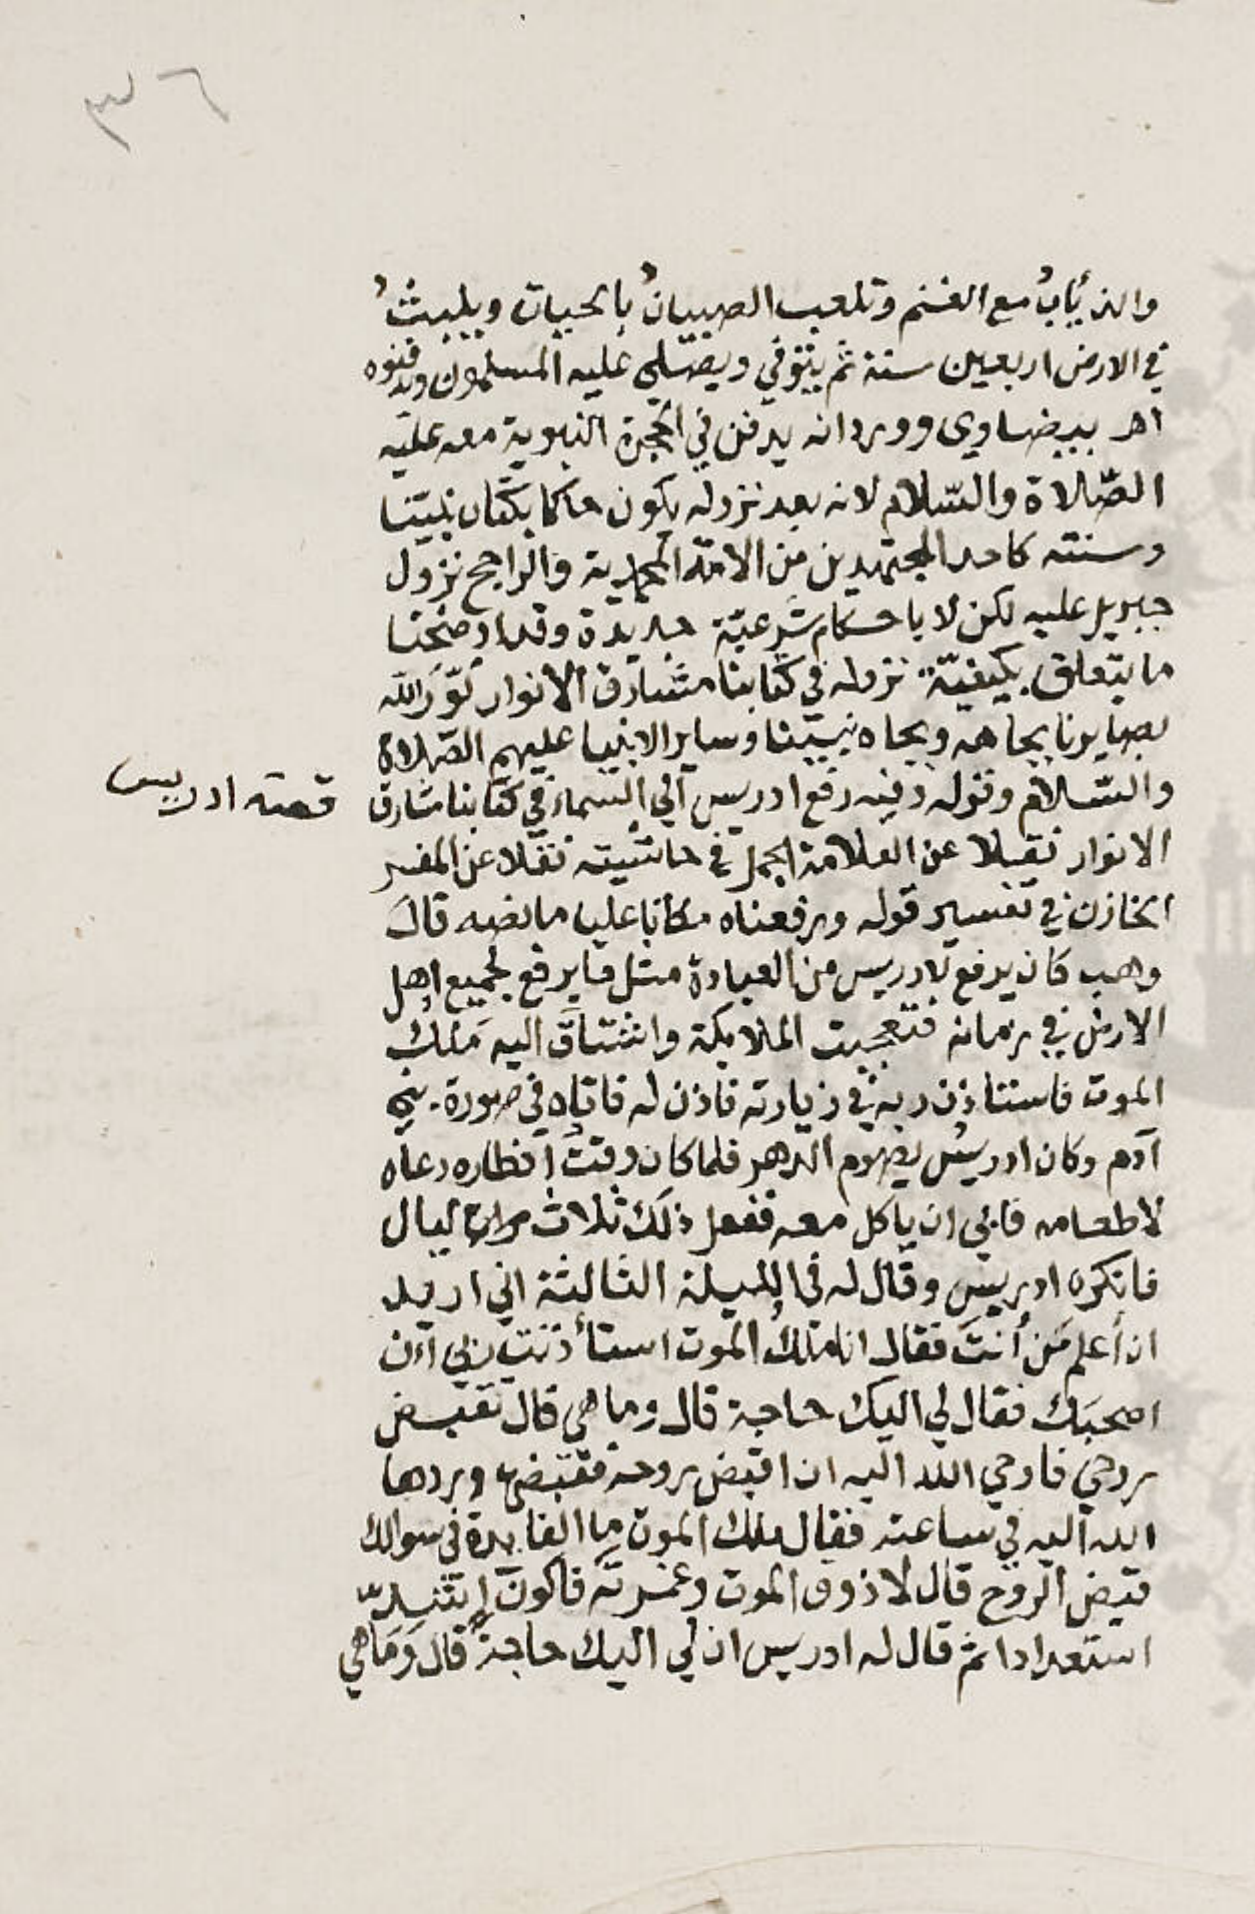 ٣٦
والذئابُ مع الغنم وتلعب الصبيانُ بالحيات ويلبثُ
في الارض اربعين سنة ثم يتوفي ويصلي عليه المسلمون ويدفنوه
اهـ بيضاوي وورد انه يدفن في الحجرة النبوية معه عليه
الصّلاة والسّلام لانه بعد نزوله يكون حاكما بكتاب نبيّنا
وسنته كاحد المجتهدين من الامّة المحمدية والراجح نزول
جبريل عليه لكن لا باحكام شرعيّة جديدة وقد اوضحنا
ما يتعلق بكيفيّة نزوله في كتابنا مشارق الانوار نوّر الله
بصايرنا بجاهه وبجاه نبيّنا وساير الانبيا عليهم الصّلاة
والسّلام وقوله وفيه رفع ادريس الي السماء في كتابنا مشارق
قصة ادريس
الانوار نقلا عن العلامة الجمل في حاشيته نقلا عن المفسر
الخازن في تفسير قوله ورفعناه مكانا عليا ما نصه قال
وهب كان يرفع لادريس من العبادة مثل ما يرفع لجميع اهل
الارض في زمانه فتعجبت الملايكة واشتاق اليه مَلكُ
الموت فاستاذن ربه في زيارته فاذن له فاتاه في صورة بني
آدم وكان ادريسُ يصوم الدهر فلما كان وقتُ افطاره دعاه
لاطعامه فابي ان ياكل معه ففعل ذلك ثلاث مرات ليال
فانكره ادريس وقال له في الليلة الثالثة اني اريد
ان أعلم مَن أنتَ فقال انا ملكُ الموت استأذنت ربي أن
اصحبَك فقال لي اليك حاجة قال وما هي قال تقبض
روحي فاوحي الله اليه ان اقبض روحه فقبضها وردها
الله اليه في ساعته فقال ملك الموت ما الفايدة في سوالك
قبض الروح قال لاذوق الموت وغمرته فاكون أشدّ
استعدادا ثم قال له ادريس ان لي اليك حاجةً قال وَمَا هي